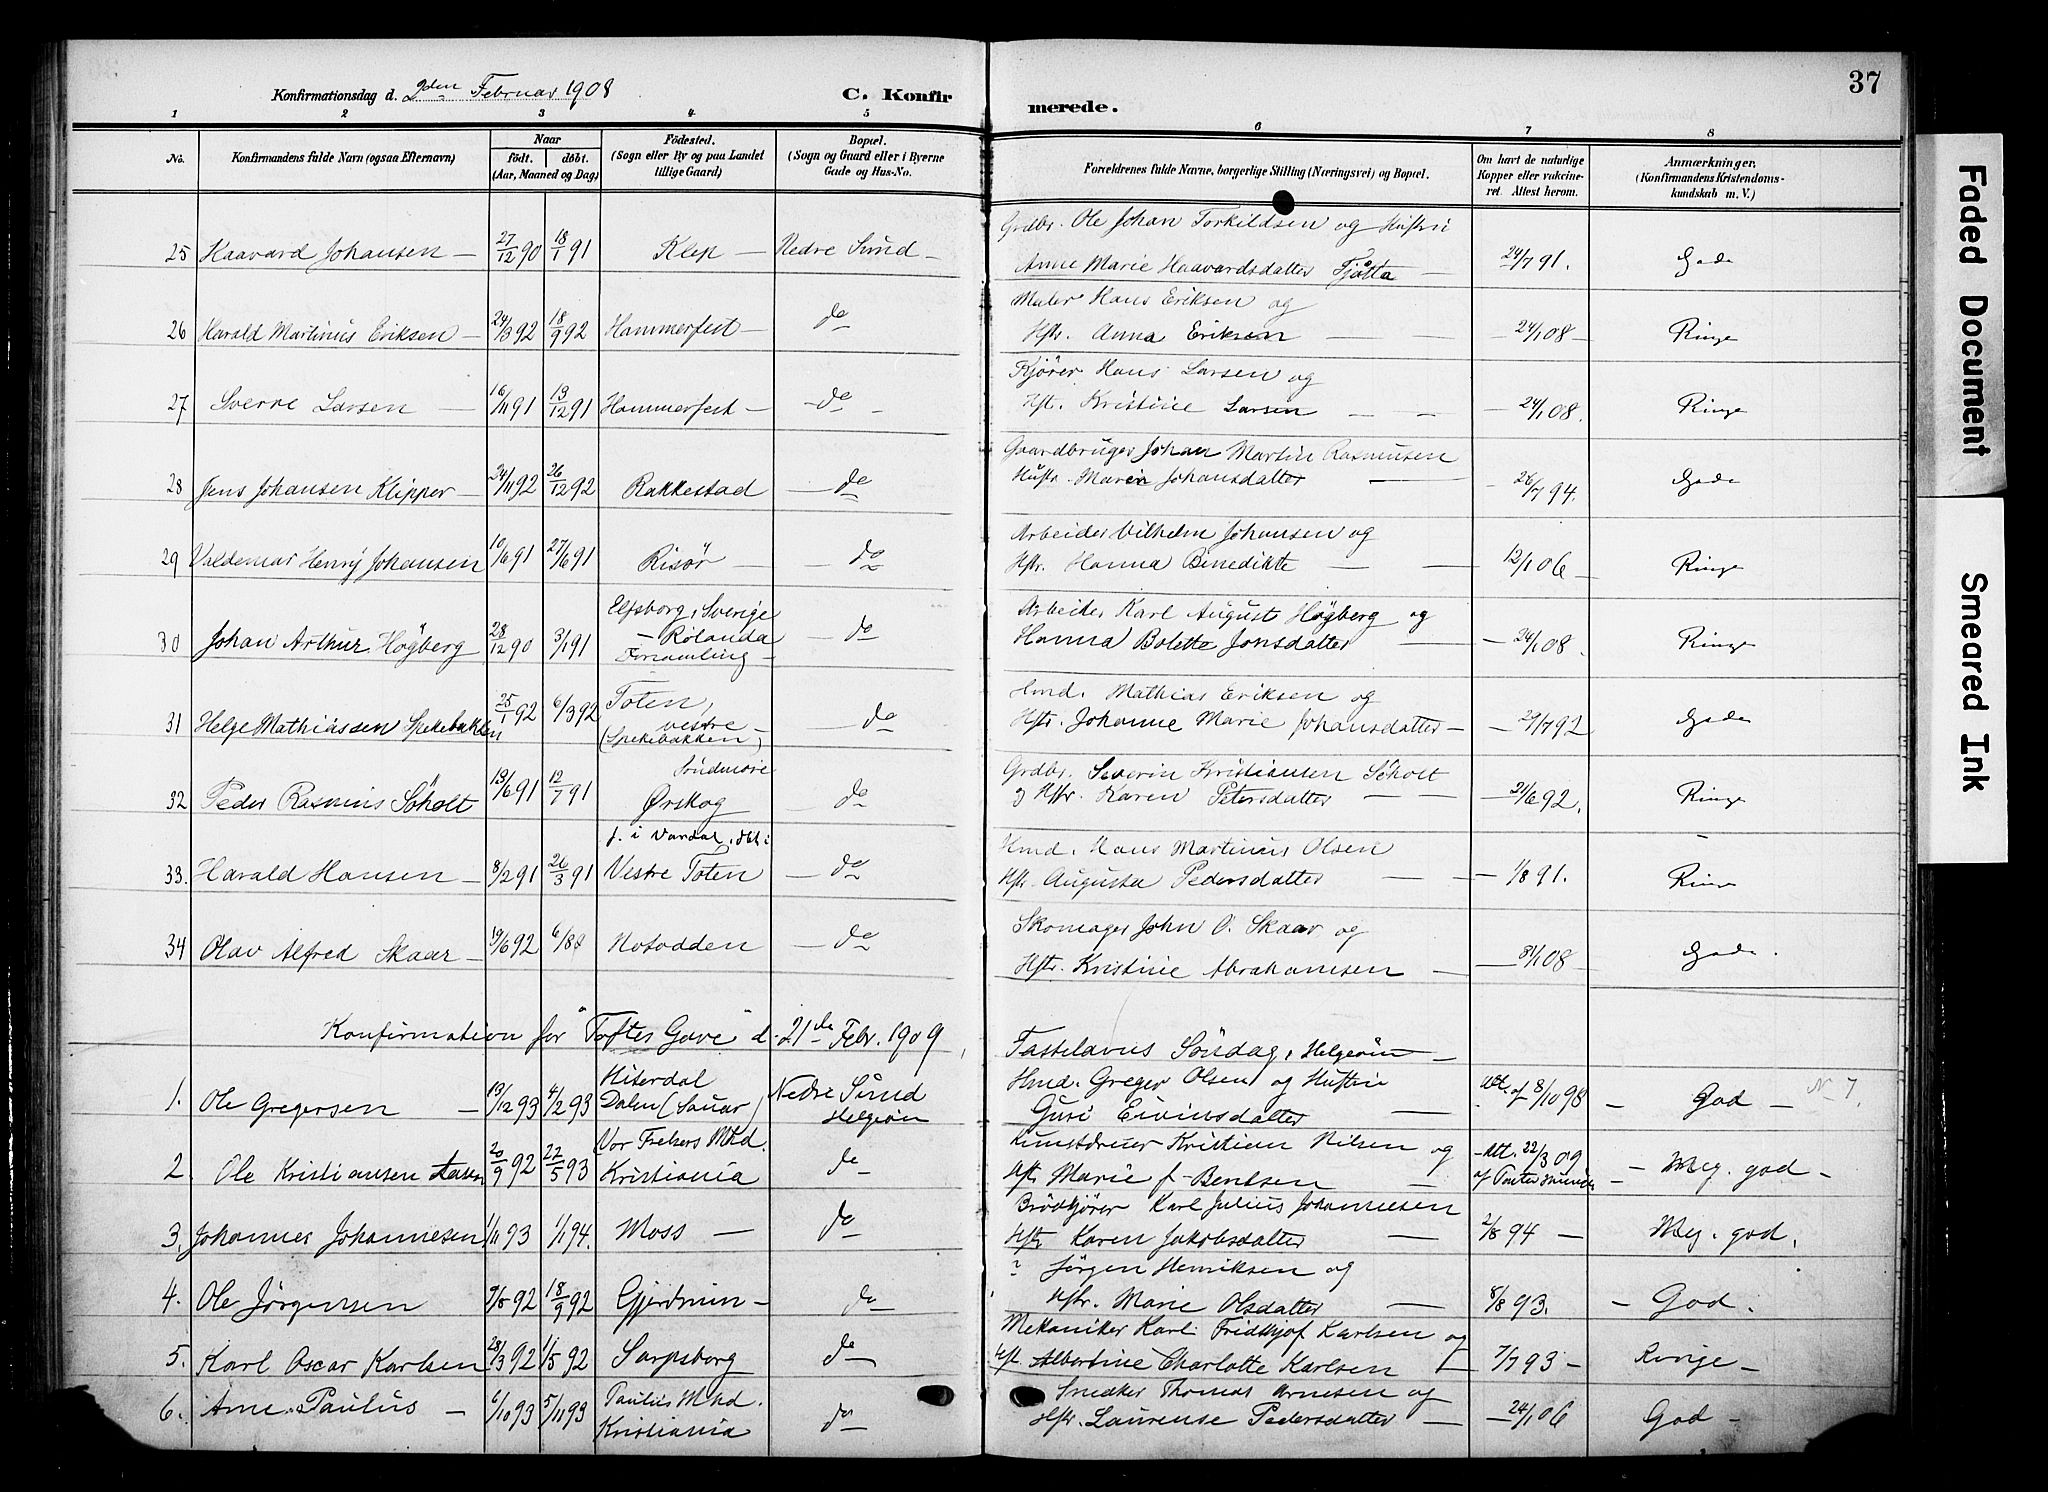 Konfirmationsdag d. 2den Februar 1908 C. Konfirmerede. 37
1 2 3 4 5 6 7 8
No. Konfirmandens fulde Navn (ogsaa Efternavn) Naar født. døbt. (Aar, Maaned og Dag) Fødested. (Sogn eller By og paa Landet tillige Gaard) Bopæl. (Sogn og Gaard eller i Byerne Gade og Hus-No. Forældrenes fulde Navne, borgerlige Stilling (Næringsvei) og Bopæl. Om havt de naturlige Kopper eller vakcineret. Attest herom. Anmærkninger. (Konfirmandens Kristendomskundskab m. V.)
Grdbr. Ole Johan Torkildsen og Hustru
25 Haavard Johansen — 27/12 90 18/1 91 Klep — Nedre Sund — Anne Marie Haavardsdatter Tjøtta — 24/7 91. Gode
Maler Hans Eriksen og
26 Harald Martinus Eriksen — 24/3 92 18/9 92 Hammerfest — do Hstr. Anna Eriksen — — 24/1 08 — Ringe
Kjører Hans Larsen og
27 Sverre Larsen — 16/11 91 13/12 91 Hammerfest — do — Hst. Kristine Larsen — — — 24/1 08. Ringe
Gaardbruger Johan Martin Rasmusen
28 Jens Johansen Klipper — 24/11 92 26/12 92 Rakkestad — do Hustr. Maren Johansdatter — — 26/7 94. Gode
Arbeider Vilhelm Johansen og
29 Valdemar Henry Johansen 10/6 91 27/6 91 Risör — do Hstr. Hanna Benedikte — — 12/1 06 — Ringe
Elfsborg, Sverige Arbeider Karl August Högberg og
30 Johan Arthur Högberg 28/12 90 3/1 91 — Rölanda Forsamling — — do Hanna Bolette Jonsdatter — 24/1 08. Ringe
Hmd. Mathias Eriksen og
31 Helge Mathiassen Spekebakken 25/1 92 6/3 92 Toten, vestre (Spekebakken) — do Hstr. Johanne Marie Johansdatter — — 29/7 92 Gode
Søndmøre Grdbr. Severin Kristiansen Söholt
32 Peder Rasmus Söholt 13/6 91 12/7 91 Ørskog — do og Hstr. Karen Petersdatter — — — 21/6 92. Ringe
f. i Vardal, dbt i Hmd. Hans Martinius Olsen
33. Harald Hansen — 8/2 91 26/3 91 Vestre Toten — do Hstr. Augusta Pedersdatter — — — 1/8 91. Ringe
Skomager John O. Skaar og
34 Olav Alfred Skaar — 19/6 92 6/8 Notodden — do Hstr. Kristine Abrahamsen — — 31/1 08 — Gode.
Konfirmation for "Toftes Gave" d. 21de Febr. 1909, Fastelavns Söndag, Helgeöen —
Hiterdal Hmd. Greger Olsen og Hustru
1. Ole Gregersen — 13/12 93 4/2 93 Dalen (Sauar) Nedre Sund Helgeöen Guri Eivinsdatter — Att. af 8/10 98 — God — N 7.
Vor Frelsers Mhd. Kristian Nilsen og
2. Ole Kristiansen 20/9 92 22/5 93 Kristiania do Hstr Marie f. Bentsen — Att. 22/3 09 — Meg. god —
Brödkjörer Karl Julius Johannesen
3. Johannes Johannesen 1/11 93 1/1 94. Moss — do Hstr Karen Jakobsdatter — 2/8 94 — Meg. god.
? Jörgen Henriksen og
4. Ole Jörgensen 7/8 92 18/9 92 Gjerdrum — do Hstr. Marie Olsdatter — 8/8 93. — God.
Mekaniker Karl Fridtjof Karlsen og
5. Karl Oscar Karlsen 28/3 92 1/5 92 Sarpsborg do Hst. Albertine Charlotte Karlsen — 7/7 93 — Ringe —
Paulus Mhd. Snedker Thomas Arnesen og
6. Arne Paulus — 6/10 93 5/11 93 Kristiania do Hstr. Laurense Pedersdatter — — 24/1 06 God —
Faded Document
Smeared Ink